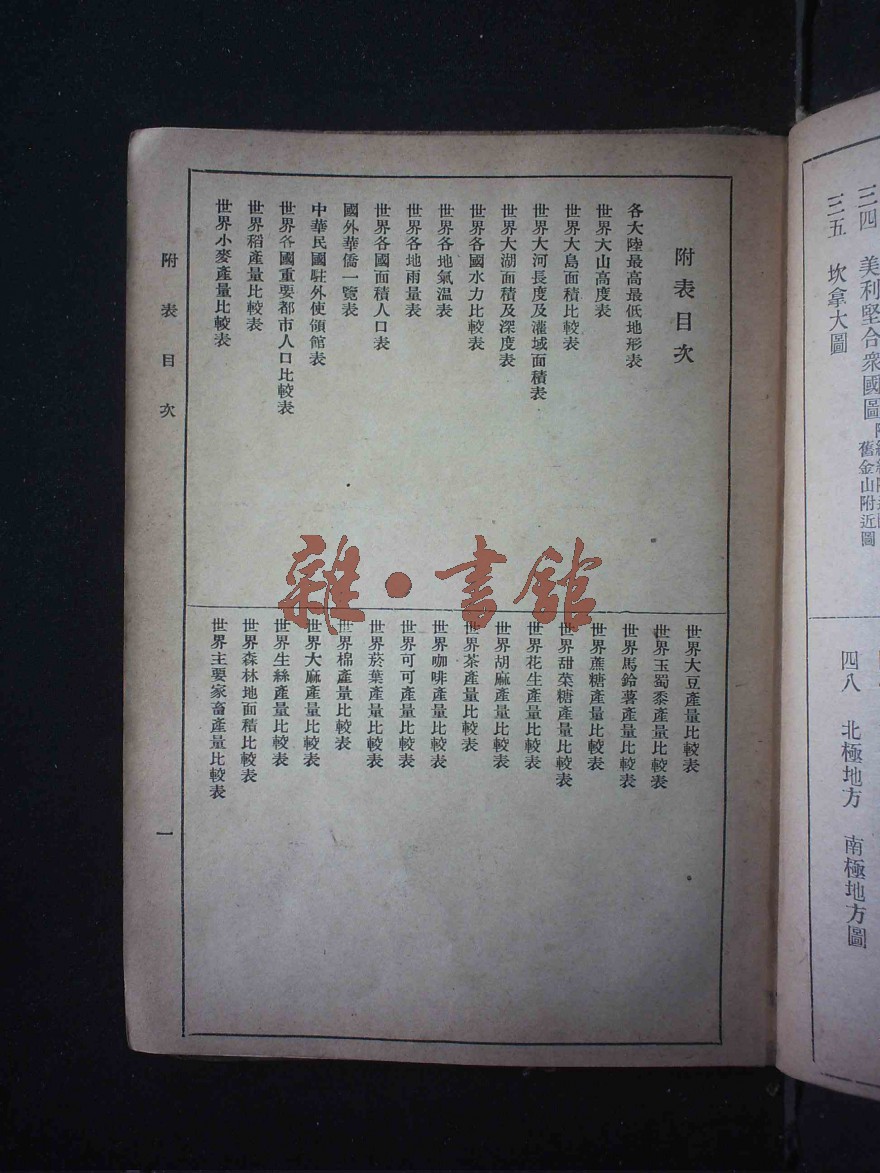 三四 美利堅合衆國圖
舊金山附近圖
三五 坎拿大圖
四八 北極地方 南極地方圖
附表目次
各大陸最高最低地形表
世界大山高度表
世界大島面積比較表
世界大河長度及灌域面積表
世界大湖面積及深度表
世界各國水力比較表
世界各地氣溫表
世界各地雨量表
世界各國面積人口表
國外華僑一覽表
中華民國駐外使領館表
世界各國重要都市人口比較表
世界稻產量比較表
世界小麥產量比較表
世界大豆產量比較表
世界玉蜀黍產量比較表
世界馬鈴薯產量比較表
世界蔗糖產量比較表
世界甜菜糖產量比較表
世界花生產量比較表
世界胡麻產量比較表
世界茶產量比較表
世界咖啡產量比較表
世界可可產量比較表
世界菸葉產量比較表
世界棉產量比較表
世界大麻產量比較表
世界生絲產量比較表
世界森林地面積比較表
世界主要家畜產量比較表
附表目次 一
雜·書館